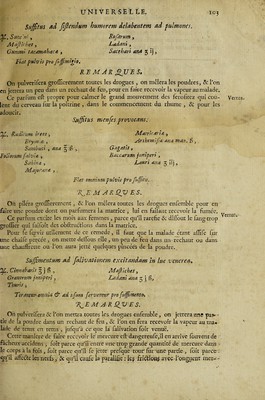 UNIVERSELLE. 103
Suffitus ad sistendum humorem delabentem ad pulmones.
Rosarum,
Mastiches, Ladani,
Gummi tacamahaca, Sacchari ana ʒ ij,
Fiat pulvis pro suffumigio.
REMARQUES.
On pulverisera grossierement toutes les drogues, on mêlera les poudres, & l'on
en jettera un peu dans un rechaut de feu, pour en faire recevoir la vapeur au malade.
Ce parfum est propre pour calmer le grand mouvement des serosités qui cou-
lent du cerveau sur la poitrine, dans le commencement du rhume, & pour les
adoucir.
Vertus.
Suffitus menses provocans.
♃. Radicum Ireos, Matricariæ,
Bryoniæ, Arthemisiæ ana man. ß,
Sambuci, ana ℥ ß, Gagatis,
Foliorum salviæ, Baccarum juniperi,
Sabinæ, Lauri ana ʒ iij,
Majoranæ,
Fiat omnium pulvis pro suffitu.
REMARQUES.
On pilera grossierement, & l'on mêlera toutes les drogues ensemble pour en
faire une poudre dont on parfumera la matrice, lui en faisant recevoir la fumée.
Ce parfum excite les mois aux femmes, parce qu'il rarefie & dissout le sang trop
grossier qui faisoit des obstructions dans la matrice.
Vertus.
Pour se servir aisément de ce remede, il faut que la malade étant assise sur
une chaise percée, on mette dessous elle, un peu de feu dans un rechaut ou dans
une chauffrette où l'on aura jetté quelques pincées de la poudre.
Suffimentum ad salivationem excitandam in lue venerea.
♃. Cinnabaris ℥ j ß, Mastiches,
Granorum juniperi, Ladani ana ʒ j ß,
Thuris,
Terantur omnia & ad usum serventur pro suffimento.
REMARQUES.
On pulverisera & l'on mettra toutes les drogues ensemble, on jettera une pin-
cée de la poudre dans un rechaut de feu, & l'on en fera recevoir la vapeur au ma-
lade de tems en tems, jusqu'à ce que la salivation soit venuë.
Cette maniere de faire recevoir le mercure est dangereuse, il en arrive souvent de
fâcheux accidens, soit parce qu'il entre une trop grande quantité de mercure dans
le corps à la fois, soit parce qu'il se jette presque tout sur une partie, soit parce
qu'il affecte les nerfs, & qu'il cause la paralisie: les frictions avec l'onguent mer-